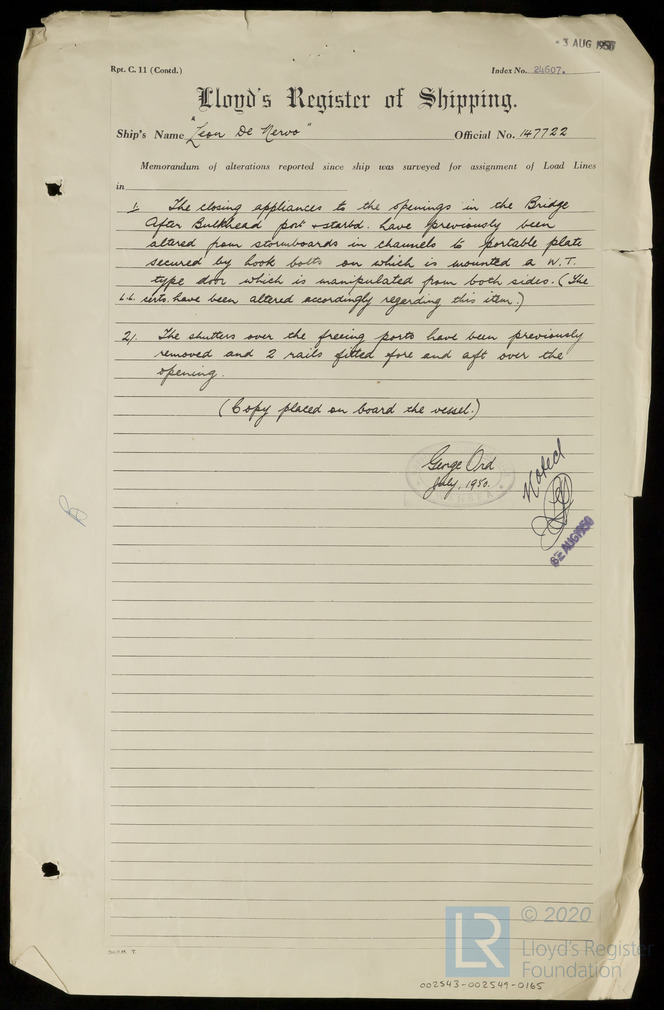 - 3 AUG 1950
Rpt. C. 11 (Contd.)
Index No. 24607.
Lloyd's Register of Shipping.
Ship's Name "Leon De Nervo"
Official No. 147722
Memorandum of alterations reported since ship was surveyed for assignment of Load Lines
in
1. The closing appliances to the openings in the Bridge
After Bulkhead port & starbd. have previously been
altered from stormboards in channels to portable plate
secured by hook bolts on which is mounted a W.T.
type door which is manipulated from both sides. (The
L.L. certs. have been altered accordingly regarding this item.)
2/. The shutters over the freeing ports have been previously
removed and 2 rails fitted fore and aft over the
opening.
(Copy placed on board the vessel.)
George Ord
July, 1950.
Noted
AUG 1950
© 2020
LR
Lloyd's Register
Foundation
002543-002549-0165